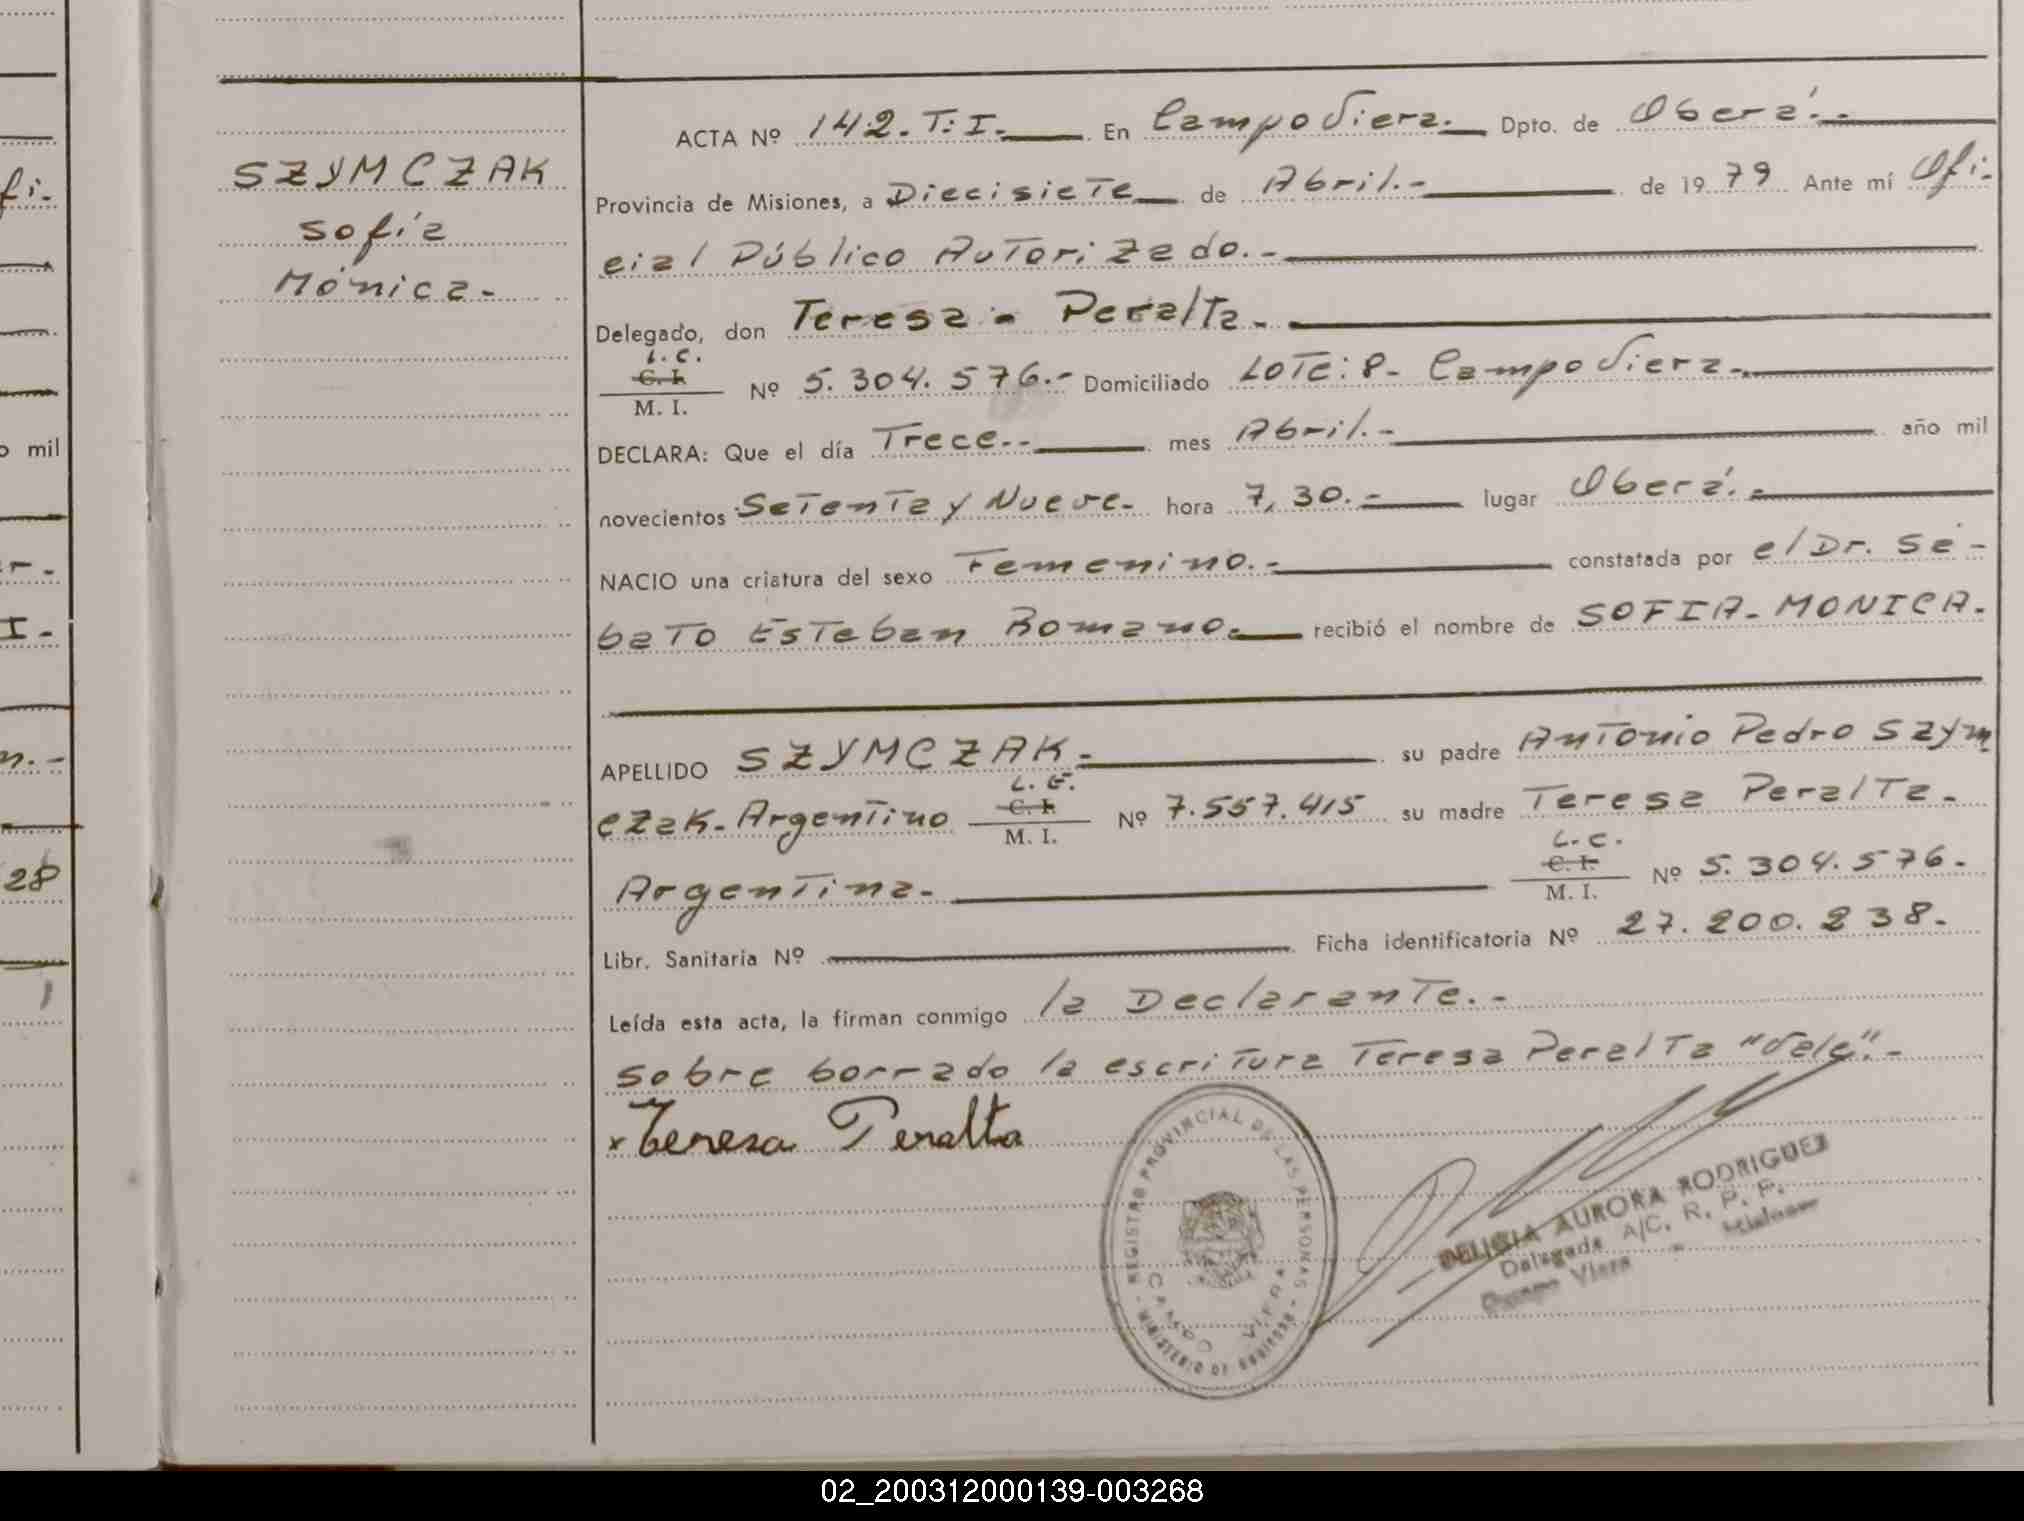 fi-
o mil
r-
I-
n.-
28
SZYMCZAK
Sofía
Mónica-
ACTA Nº 142. T: I. En Campo Viera. Dpto. de Oberá.-
Provincia de Misiones, a Diecisiete de Abril.- de 1979 Ante mí Ofi-
cial Público Autorizado.-
Delegado, don Teresa - Peralta-
L. C.
C. I.
M. I. Nº 5.304.576.- Domiciliado Lote: 8- Campo Viera-
DECLARA: Que el día Trece.- mes Abril.- año mil
novecientos Setenta y Nueve- hora 7,30.- lugar Oberá.-
NACIO una criatura del sexo Femenino.- constatada por el Dr. Sé-
bato Esteban Romano- recibió el nombre de SOFIA-MONICA-
APELLIDO SZYMCZAK- su padre Antonio Pedro Szym
czak-Argentino L. E. C. I. M. I. Nº 7.557.415 su madre Teresa Peralta-
Argentina- L. C. C. I. M. I. Nº 5.304.576-
Libr. Sanitaria Nº Ficha identificatoria Nº 27.200.238-
Leída esta acta, la firman conmigo la Declarante.-
sobre borrado la escritura Teresa Peralta "Vale".-
x Teresa Peralta
REGISTRO PROVINCIAL DE LAS PERSONAS
MINISTERIO DE GOBIERNO
CAMPO VIERA
DELICIA AURORA RODRIGUEZ
Delegada A/C. R. P. P.
Campo Viera - Misiones
02_200312000139-003268